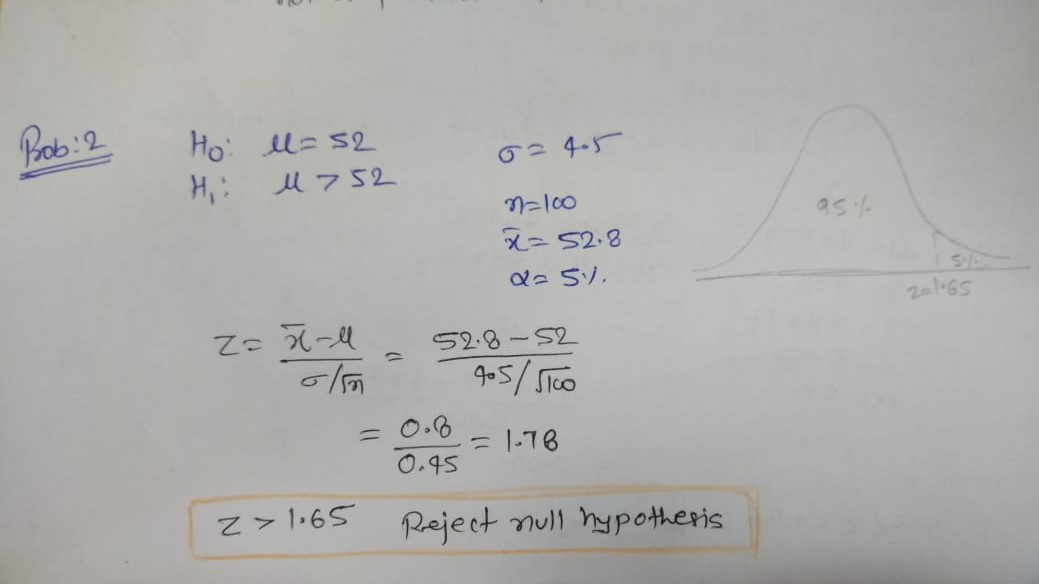 Prob:2
H₀: μ = 52
H₁: μ > 52
σ = 4.5
n=100
x̄ = 52.8
α = 5%.
95%
5%
z=1.65
Z = (x̄-μ)/(σ/√n) = (52.8-52)/(4.5/√100)
= 0.8/0.45 = 1.78
Z > 1.65 Reject null hypothesis